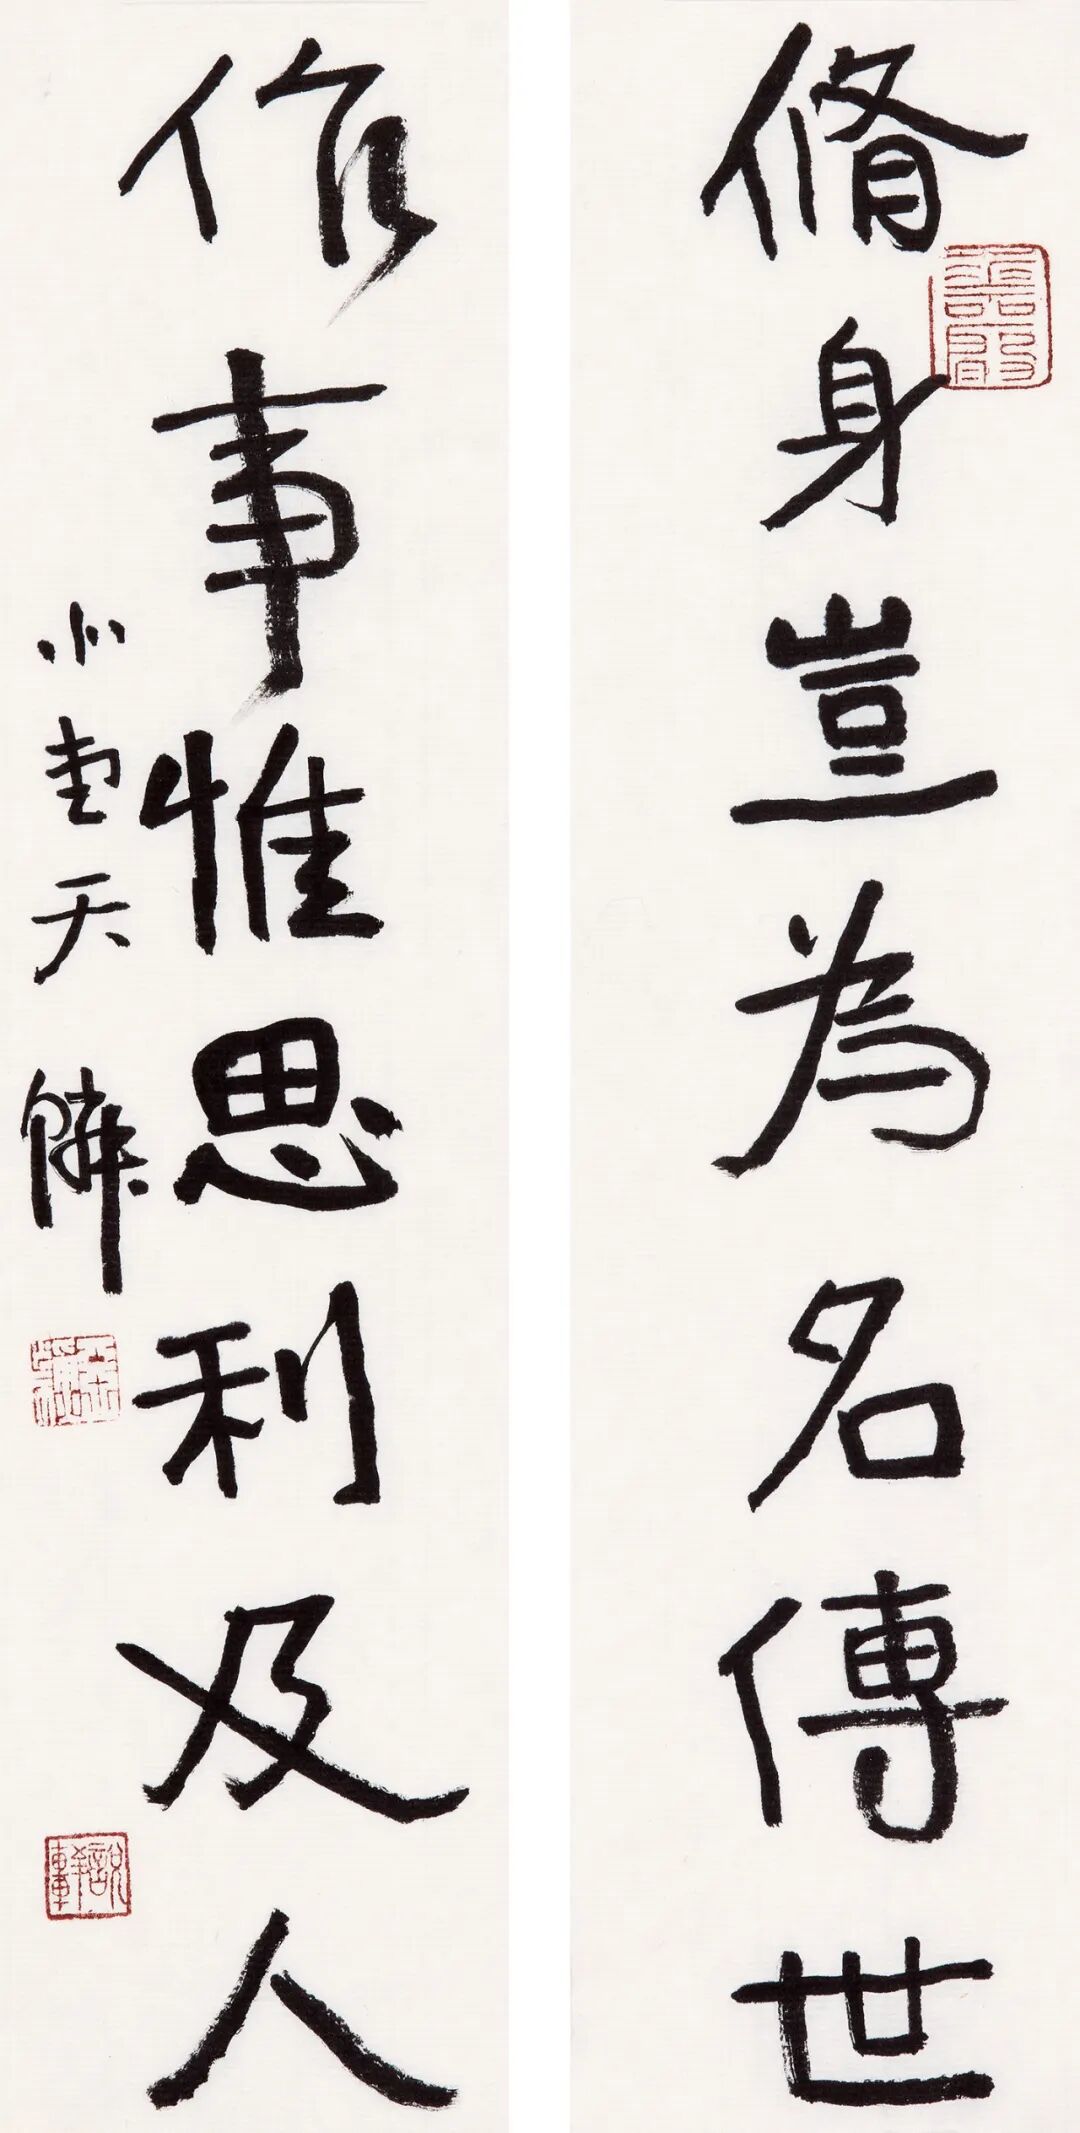 脩身豈為名傳世
作事惟思利及人
小堂天
説静軒